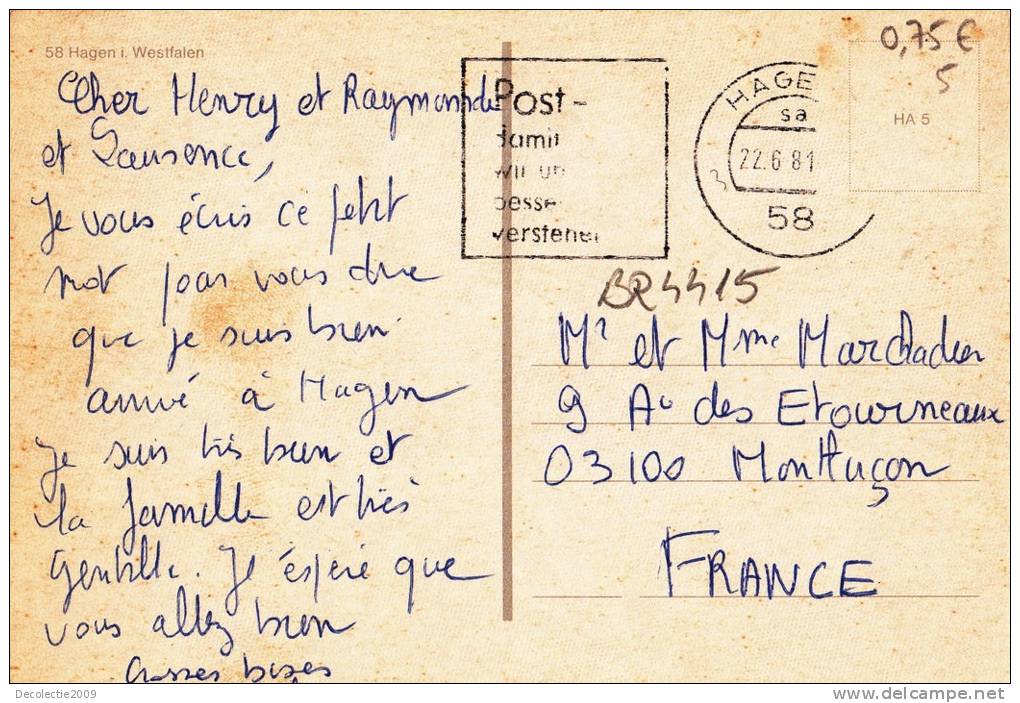 58 Hagen i. Westfalen
Cher Henry et Raymonde
et Laurence,
Je vous écris ce petit
mot pour vous dire
que je suis bien
arrivé à Hagen
Je suis très bien et
la famille est très
gentille. Je éspére que
vous allez bien
Grosses bises
Post-
damit
wir un
besse
verstehen
HAGE
sa
22.6.81
58
0,75 €
5
HA 5
BR4415
Mr et Mme
9 Av des Etourneaux
03100 Montluçon
FRANCE
Decolectie2009
delcampe.net